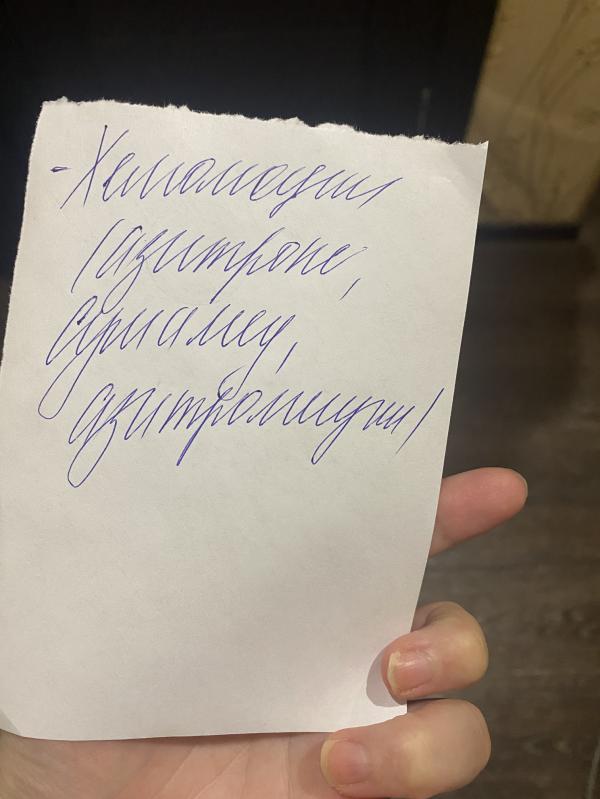 - Хемомоцин
(азитронс,
сумамед,
азитромицин)